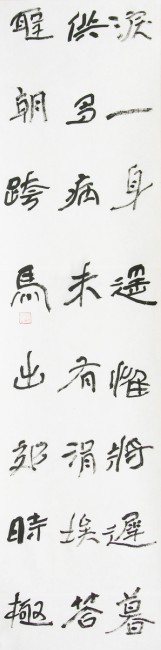 淚一身遥惟將遲暮
供多病未有涓埃答
聖朝跨馬出郊時極